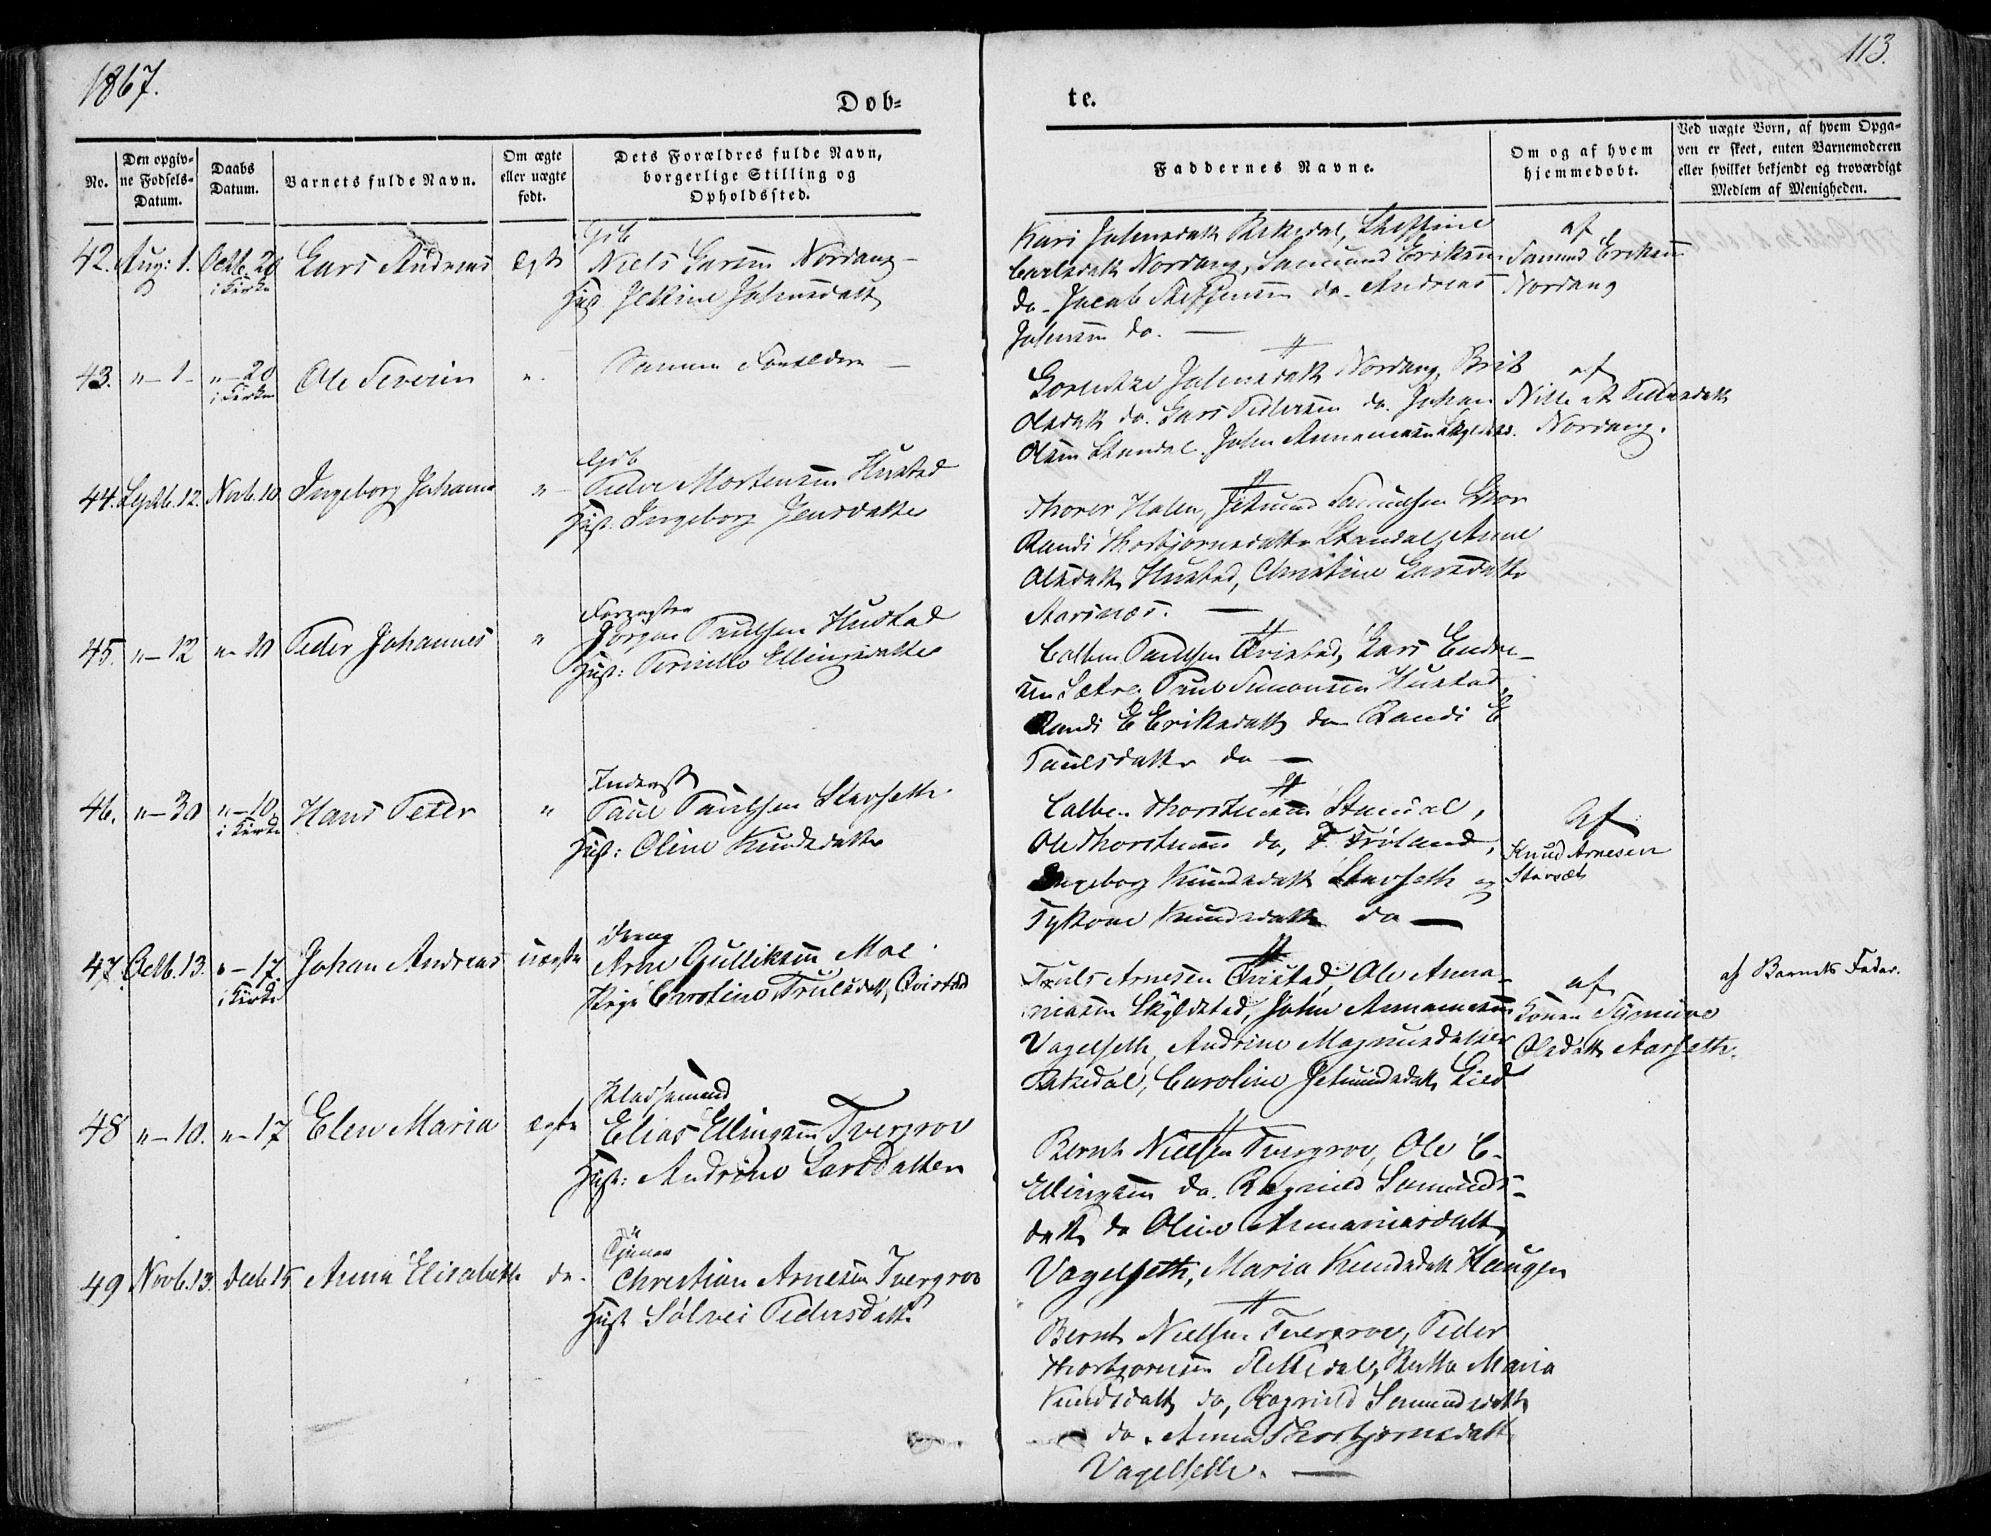 1867.
113.
Døb=
te.
No.
Den opgiv-
ne Fødsels-
Datum.
Daabs
Datum.
Barnets fulde Navn.
Om ægte
eller uægte
født.
Dets Forældres fulde Navn,
borgerlige Stilling og
Opholdssted.
Faddernes Navne.
Om og af hvem
hjemmedøbt.
Ved uægte Børn, af hvem Opga-
ven er skeet, enten Barnemoderen
eller hvilket bekjendt og troværdigt
Medlem af Menigheden.
42. Aug: 1. Octb. 20 Lars Andreas ægte
i Kirke
Gdb
Niels Larsen Nordang
Hust. Jettine Johnsdatt
Kari Johnsdatt Rekedal, Steffine
Carlsdatt Nordang, Samund Eriksen
do. Jacob Steffensen do. Andreas
Johnsen do. —
af
Samund Eriksen
Nordang
43. "—1— "—20 Ole Severin "
i Kirke
Samme Forældre —
Lorentze Johnsdatt Nordang, Brit
Olsdatt do. Lars Pedersen do. Johan
Olsen Standal. John Annaniasen
af
Pedersdatt
Nordang.
44. Septb. 12. Novb. 10 Ingeborg Johanne "
Gdb
Peder Mortensen Hustad
Hust. Ingeborg Jensdatter
Thorer Halen, Jetmund Samuelsen
Randi Thorbjørnsdatter Standal, Anne
Olsdatt Hustad, Christine Larsdatter
Aarsnæs. —
45. "—12 "—10 Peder Johannes "
Forpagter
Jørgen Paulsen Hustad
Hust: Pernille Ellingsdatter
Colben Paulsen Qvistad, Lars Endre-
sen Sætre, Paul Simonsen Hustad,
Randi E Eriksdatt do Randi E
Paulsdatter do —
46. "—30 "—10 Hans Peter "
i Kirke
Inderst
Paul Paulsen Stavseth
Hust: Oline Knudsdatter
Colben Thorstensen Standal,
Ole Thorstensen do, P. Frøland,
Ingeborg Knudsdatt Stavseth og
Knudsdatter do —
Af
Knud Arnesen
Stavsæt
47. Octb. 13. "—17. Johan Andreas uægte
i Kirke
dreng
Arne Gulliksen Moe
Pige Caroline Trulsdatt, Qvistad
Truls Arnesen Qvistad, Ole Anna-
niasen Skyldstad, John Annaniasen
Vagelseth, Andrine Magnusdatter
Rekedal, Caroline Jetmundsdatt Lied
af
Konen
Olsdatt Aarseth.
af Barnets Fader.
48 "—10. "—17 Elen Maria ægte
Pladsemand
Elias Ellingsen Tvergrov
Hust: Andrine Larsdatter
Bernt Nielsen Tvergrov, Ole C.
Ellingsen do. Ragnild Samunds-
datt do Oline Annaniasdatt
Vagelseth, Maria Knudsdatt Haugen
49 Novb. 13. Decb. 15 Anne Elisabeth do.
Christian Arnesen Tvergrov
Hust Sølvei Pedersdatt
Bernt Nielsen Tvergrov, Peder
Thorbjørnsen Rekkedal, Maria
Knudsdatt do, Ragnild Samundsdatt
do. Anne Thorbjørnsdatt
Vagelseth. —